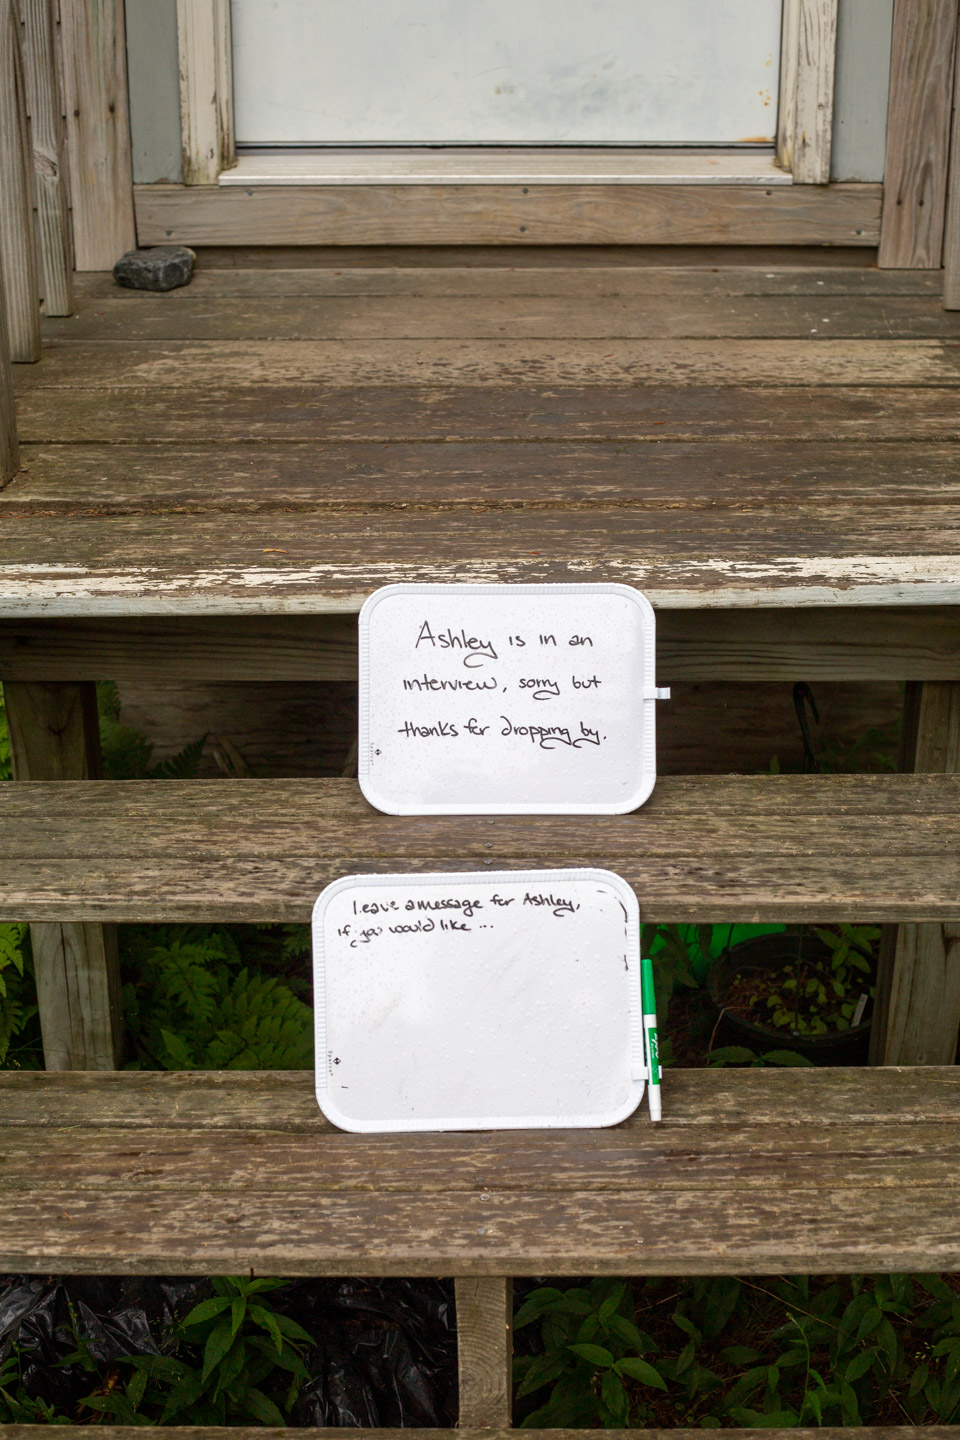 Ashley is in an
interview, sorry but
thanks for dropping by.
Leave a message for Ashley,
if you would like ...